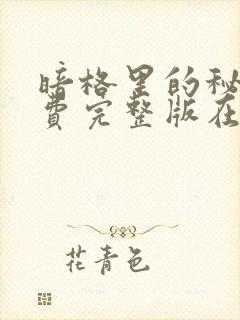 暗格里的秘
费完整版在
花青色